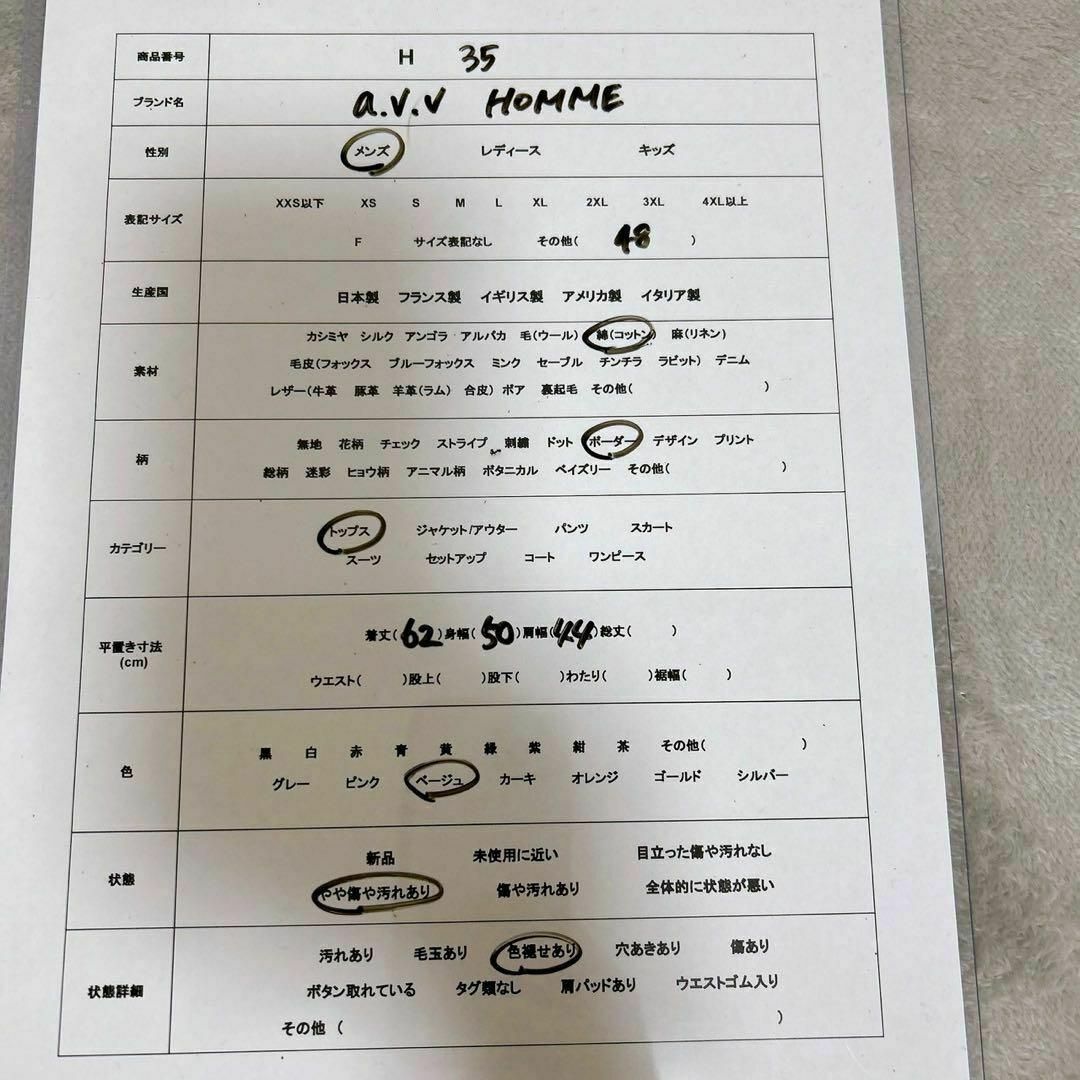 商品番号 H 35
ブランド名 a.v.v HOMME
性別 メンズ レディース キッズ
表記サイズ
XXS以下 XS S M L XL 2XL 3XL 4XL以上
F サイズ表記なし その他( 48 )
生産国 日本製 フランス製 イギリス製 アメリカ製 イタリア製
素材
カシミヤ シルク アンゴラ アルパカ 毛(ウール) 綿(コットン) 麻(リネン)
毛皮(フォックス ブルーフォックス ミンク セーブル チンチラ ラビット) デニム
レザー(牛革 豚革 羊革(ラム) 合皮) ボア 裏起毛 その他( )
柄
無地 花柄 チェック ストライプ 刺繍 ドット ボーダー デザイン プリント
総柄 迷彩 ヒョウ柄 アニマル柄 ボタニカル ペイズリー その他( )
カテゴリー
トップス ジャケット/アウター パンツ スカート
スーツ セットアップ コート ワンピース
平置き寸法
(cm)
着丈( 62 )身幅( 50 )肩幅( 44 )総丈( )
ウエスト( )股上( )股下( )わたり( )裾幅( )
色
黒 白 赤 青 黄 緑 紫 紺 茶 その他( )
グレー ピンク ベージュ カーキ オレンジ ゴールド シルバー
状態
新品 未使用に近い 目立った傷や汚れなし
やや傷や汚れあり 傷や汚れあり 全体的に状態が悪い
状態詳細
汚れあり 毛玉あり 色褪せあり 穴あきあり 傷あり
ボタン取れている タグ類なし 肩パッドあり ウエストゴム入り
その他 ( )